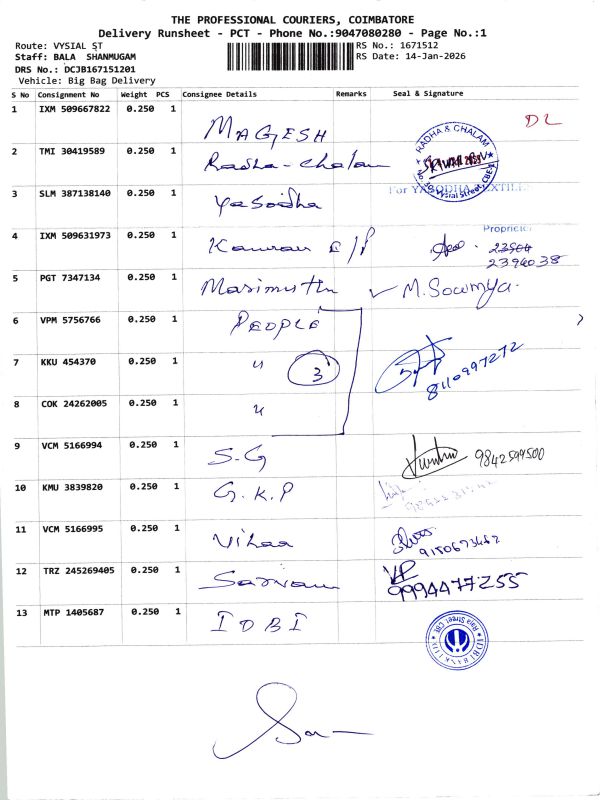 THE PROFESSIONAL COURIERS, COIMBATORE
Delivery Runsheet - PCT - Phone No.:9047080280 - Page No.:1
Route: VYSIAL ST
Staff: BALA SHANMUGAM
DRS No.: DCJB167151201
Vehicle: Big Bag Delivery
RS No.: 1671512
RS Date: 14-Jan-2026
S No Consignment No Weight PCS Consignee Details Remarks Seal & Signature
1 IXM 509667822 0.250 1 MAGESH DL
2 TMI 30419589 0.250 1 Radha-Chalam RADHA & CHALAM Vysial Street, CBE
3 SLM 387138140 0.250 1 Yasodha For YASODHA TEXTILE
4 IXM 509631973 0.250 1 E/P Proprietor
2394038
5 PGT 7347134 0.250 1 Marimuthu M. Sowmya.
6 VPM 5756766 0.250 1 PEOPLE
7 KKU 454370 0.250 1 " 3 8110997272
8 COK 24262005 0.250 1 "
9 VCM 5166994 0.250 1 S.G 9842599500
10 KMU 3839820 0.250 1 G.K.P
11 VCM 5166995 0.250 1 Vihaa
12 TRZ 245269405 0.250 1 Sarvam VP
9994477255
13 MTP 1405687 0.250 1 IDBI IDBI BANK LTD Raja Street, CBE